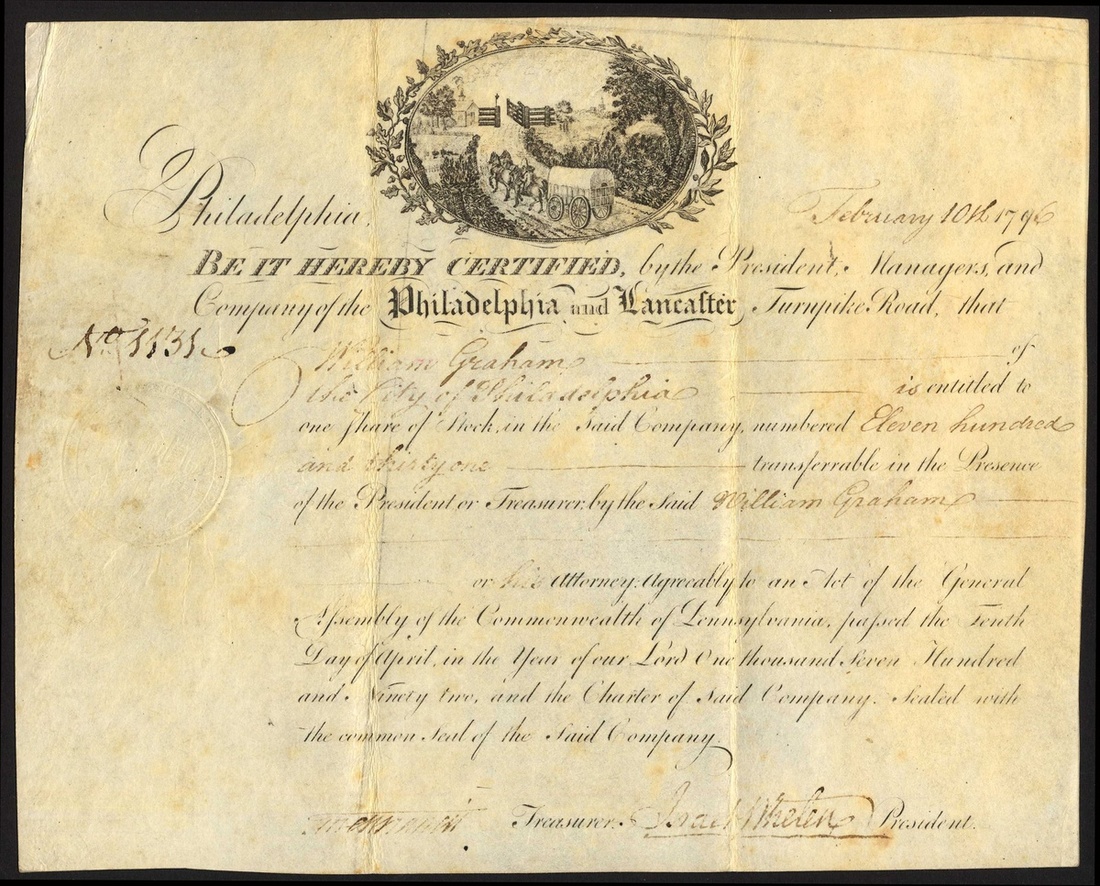 Philadelphia, February 10th 1796
BE IT HEREBY CERTIFIED, by the President, Managers, and
Company of the Philadelphia and Lancaster Turnpike Road, that
No. 1131
William Graham of
the City of Philadelphia is entitled to
one Share of Stock, in the Said Company, numbered Eleven hundred
and thirty one transferrable in the Presence
of the President or Treasurer by the Said William Graham
or his Attorney: Agreeably to an Act of the General
Assembly of the Commonwealth of Pennsylvania, passed the Tenth
Day of April, in the Year of our Lord One thousand Seven Hundred
and Ninety two, and the Charter of Said Company. Sealed with
the common Seal of the Said Company.
Treasurer. Israel Whelen President.